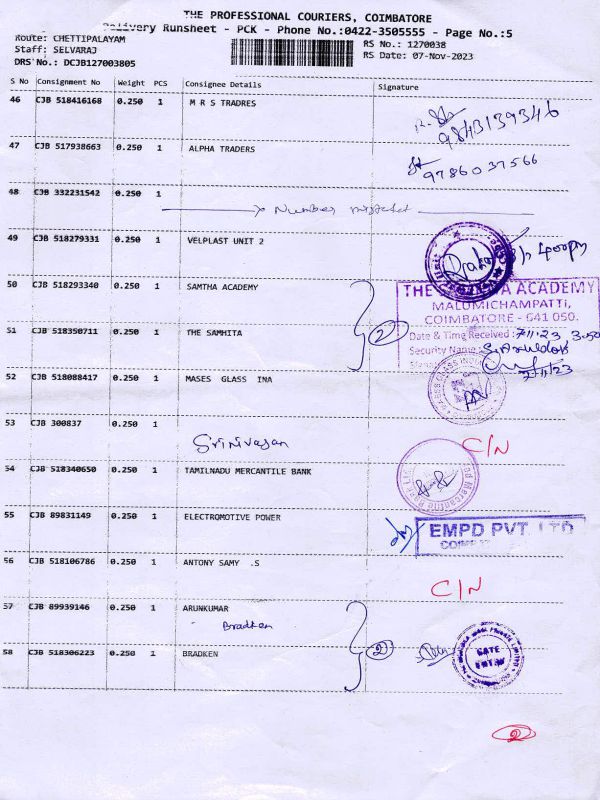 THE PROFESSIONAL COURIERS, COIMBATORE
Delivery Runsheet - PCK - Phone No.:0422-3505555 - Page No.:5
Route: CHETTIPALAYAM
RS No.: 1270038
Staff: SELVARAJ
RS Date: 07-Nov-2023
DRS No.: DCJB127003805
S No Consignment No Weight PCS Consignee Details Signature
46 CJB 518416168 0.250 1 M R S TRADRES
9843139346
47 CJB 517938663 0.250 1 ALPHA TRADERS
9786037566
48 CJB 332231542 0.250 1
Number
49 CJB 518279331 0.250 1 VELPLAST UNIT 2
50 CJB 518293340 0.250 1 SAMTHA ACADEMY
THE ACADEMY
MALUMICHAMPATTI,
COIMBATORE - 641 050.
2
51 CJB 518350711 0.250 1 THE SAMHITA
Date & Time Received : 7.11.23 3.50
Security Name
7/11/23
52 CJB 518088417 0.250 1 MASES GLASS INA
53 CJB 300837 0.250 1
Srinivasan
C/N
54 CJB 518340650 0.250 1 TAMILNADU MERCANTILE BANK
55 CJB 89831149 0.250 1 ELECTROMOTIVE POWER
EMPD PVT. LTD
56 CJB 518106786 0.250 1 ANTONY SAMY .S
C/N
57 CJB 89939146 0.250 1 ARUNKUMAR
Bradken
58 CJB 518306223 0.250 1 BRADKEN
2
GATE
ENTRY
2